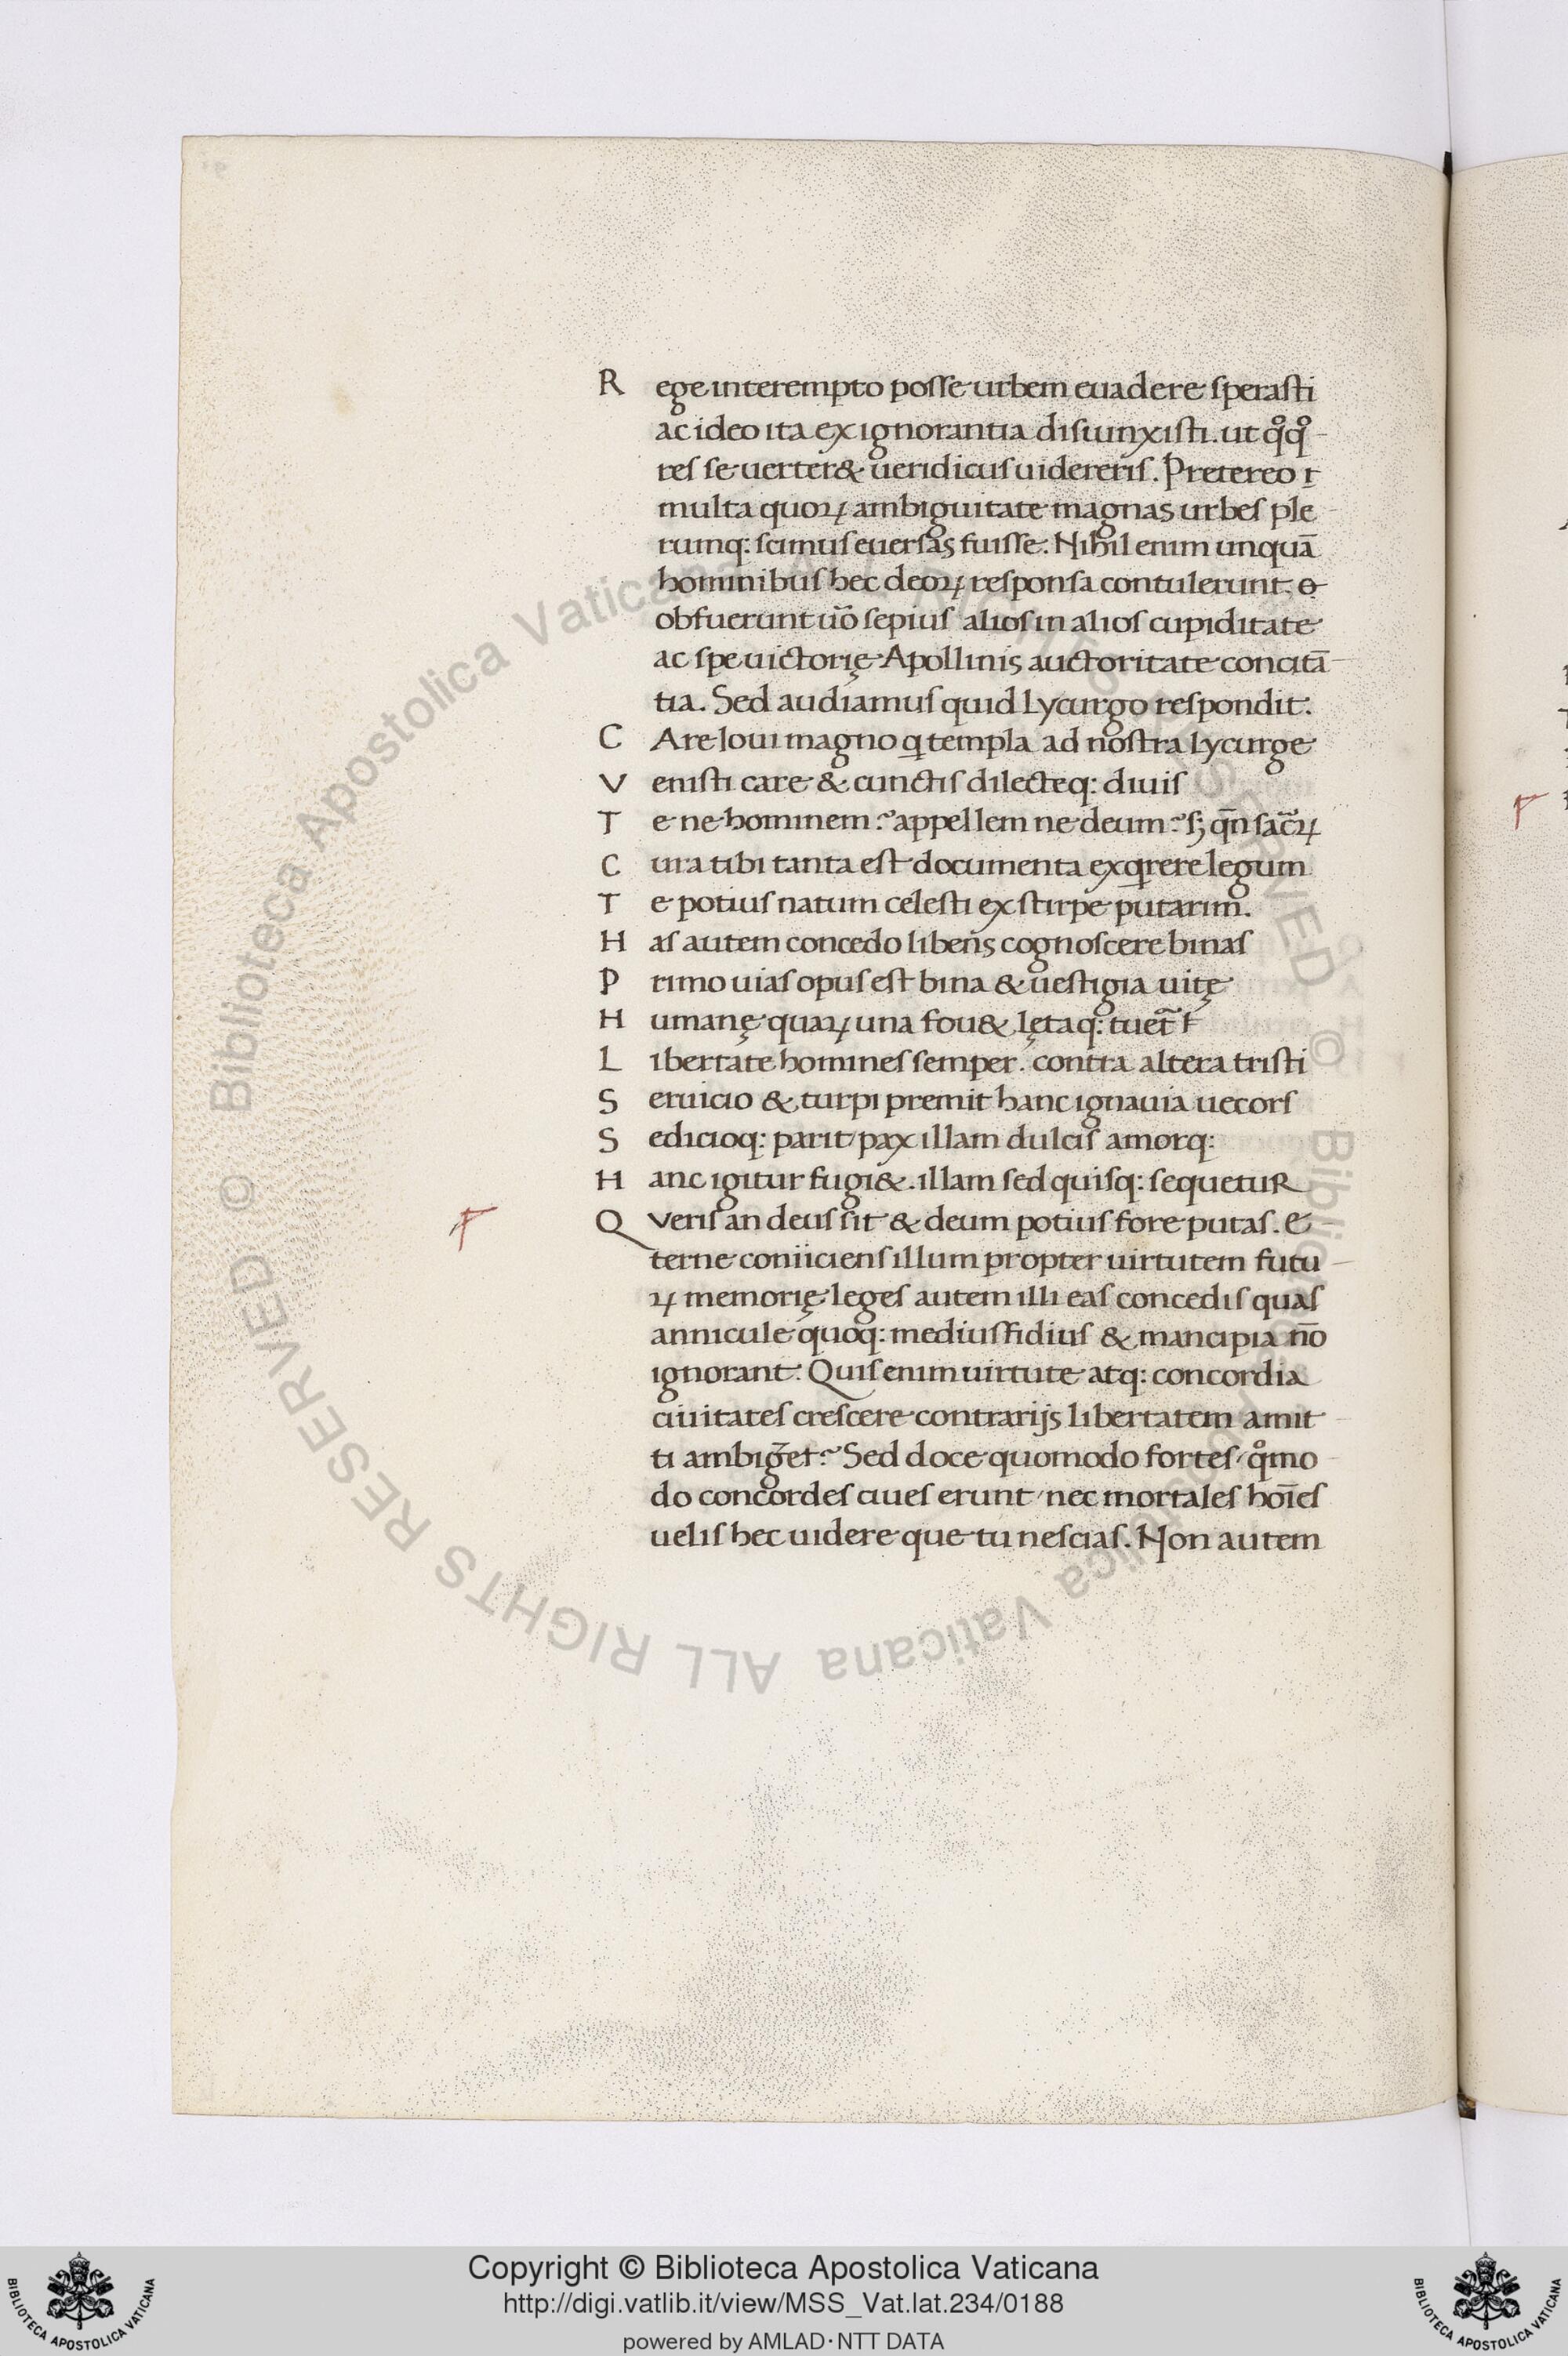 R ege interempto posse urbem euadere sperasti
ac ideo ita ex ignorantia disiunxisti. ut qͦqͦ
res se uerter& ueridicus uidereris. Pretereo
multa quoꝝ ambiguitate magnas urbes ple
rumq: scimus euersas fuisse. Nihil enim unquā
hominibus hec deoꝝ responsa contulerunt.
obfuerunt ūo sepius alios in alios cupiditate
ac spe uictorię Apollinis auctoritate concitā
tia. Sed audiamus quid Lycurgo respondit.
C Are Ioui magno ꝗ templa ad nostra Lycurge
V enisti care & cunctis dilecteq: diuis
T e ne hominem? appellem ne deum? sꝫ qn̄ sac̄ꝝ
C ura tibi tanta est documenta exꝗrere legum
T e potius natum celesti ex stirpe putarim.
H as autem concedo libens cognoscere binas
P rimo uias opus est bina & uestigia uitę
H umanę quaꝝ una fou& lętaq: tuet̄
L ibertate homines semper. contra altera tristi
S eruicio & turpi premit hanc ignauia uecors
S edicioq: parit pax illam dulcis amorq:
H anc igitur fugi&. illam sed quisq: sequetuR
Q veris an deus sit & deum potius fore putas. e
terne coniiciens illum propter uirtutem futu
ꝝ memorię leges autem illi eas concedis quas
annicule quoq: mediusfidius & mancipia nō
ignorant. Quis enim uirtute atq: concordia
ciuitates crescere contrarijs libertatem amit
ti ambiḡet? Sed doce quomodo fortes / qͦmo
do concordes ciues erunt / nec mortales hoīes
uelis hec uidere que tu nescias. Non autem
Biblioteca Apostolica Vaticana ALL RIGHTS RESERVED ©
Biblioteca Apostolica Vaticana ALL RIGHTS RESERVED ©
Copyright © Biblioteca Apostolica Vaticana
http://digi.vatlib.it/view/MSS_Vat.lat.234/0188
powered by AMLAD·NTT DATA
BIBLIOTECA APOSTOLICA VATICANA
BIBLIOTECA APOSTOLICA VATICANA